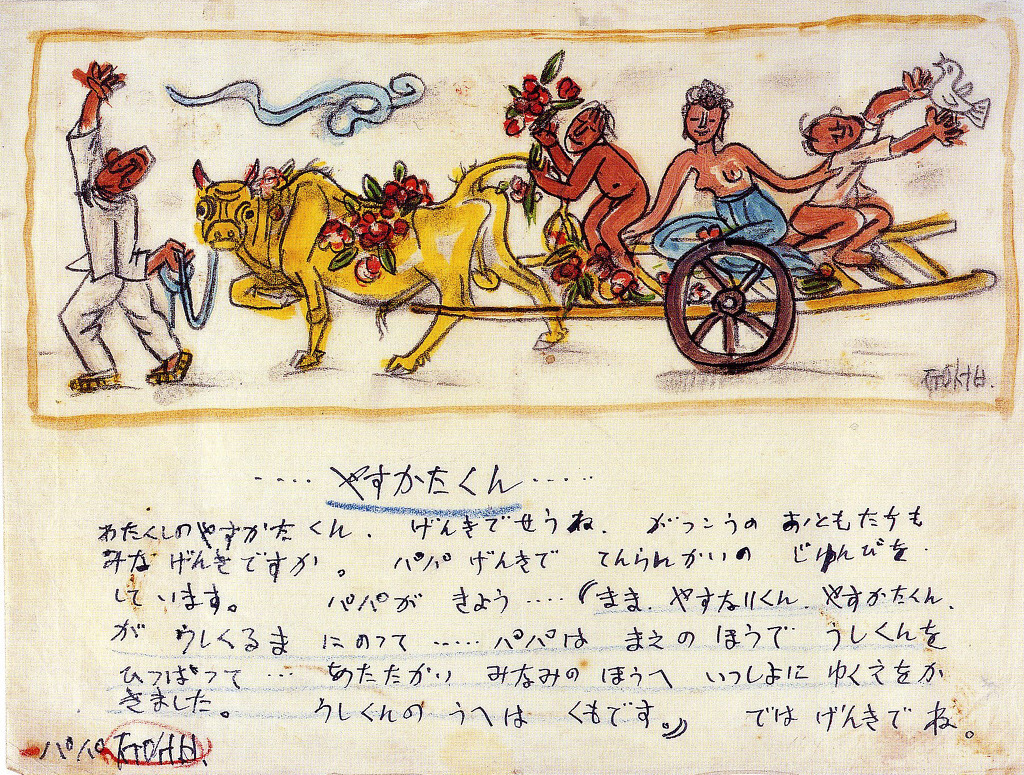 ㅈㅜㅇㅅㅓㅂ.
‥‥ やすかたくん ‥‥
わたくしのやすかたくん. げんきでせうね. がつこうの おともたちも
みな げんきですか。 パパ げんきで てんらんかいの じゆんびを
しています。 パパが きよう ‥‥ (まま. やすなりくん. やすかたくん.
が うしくるま にのつて ‥‥ パパは まえの ほうで うしくんを
ひつぱつて … あたたかい みなみの ほうへ いつしよに ゆくえをか
きました。 うしくんの うへは くもです。) では げんきで ね。
パパ ㅈㅜㅇㅅㅓㅂ.